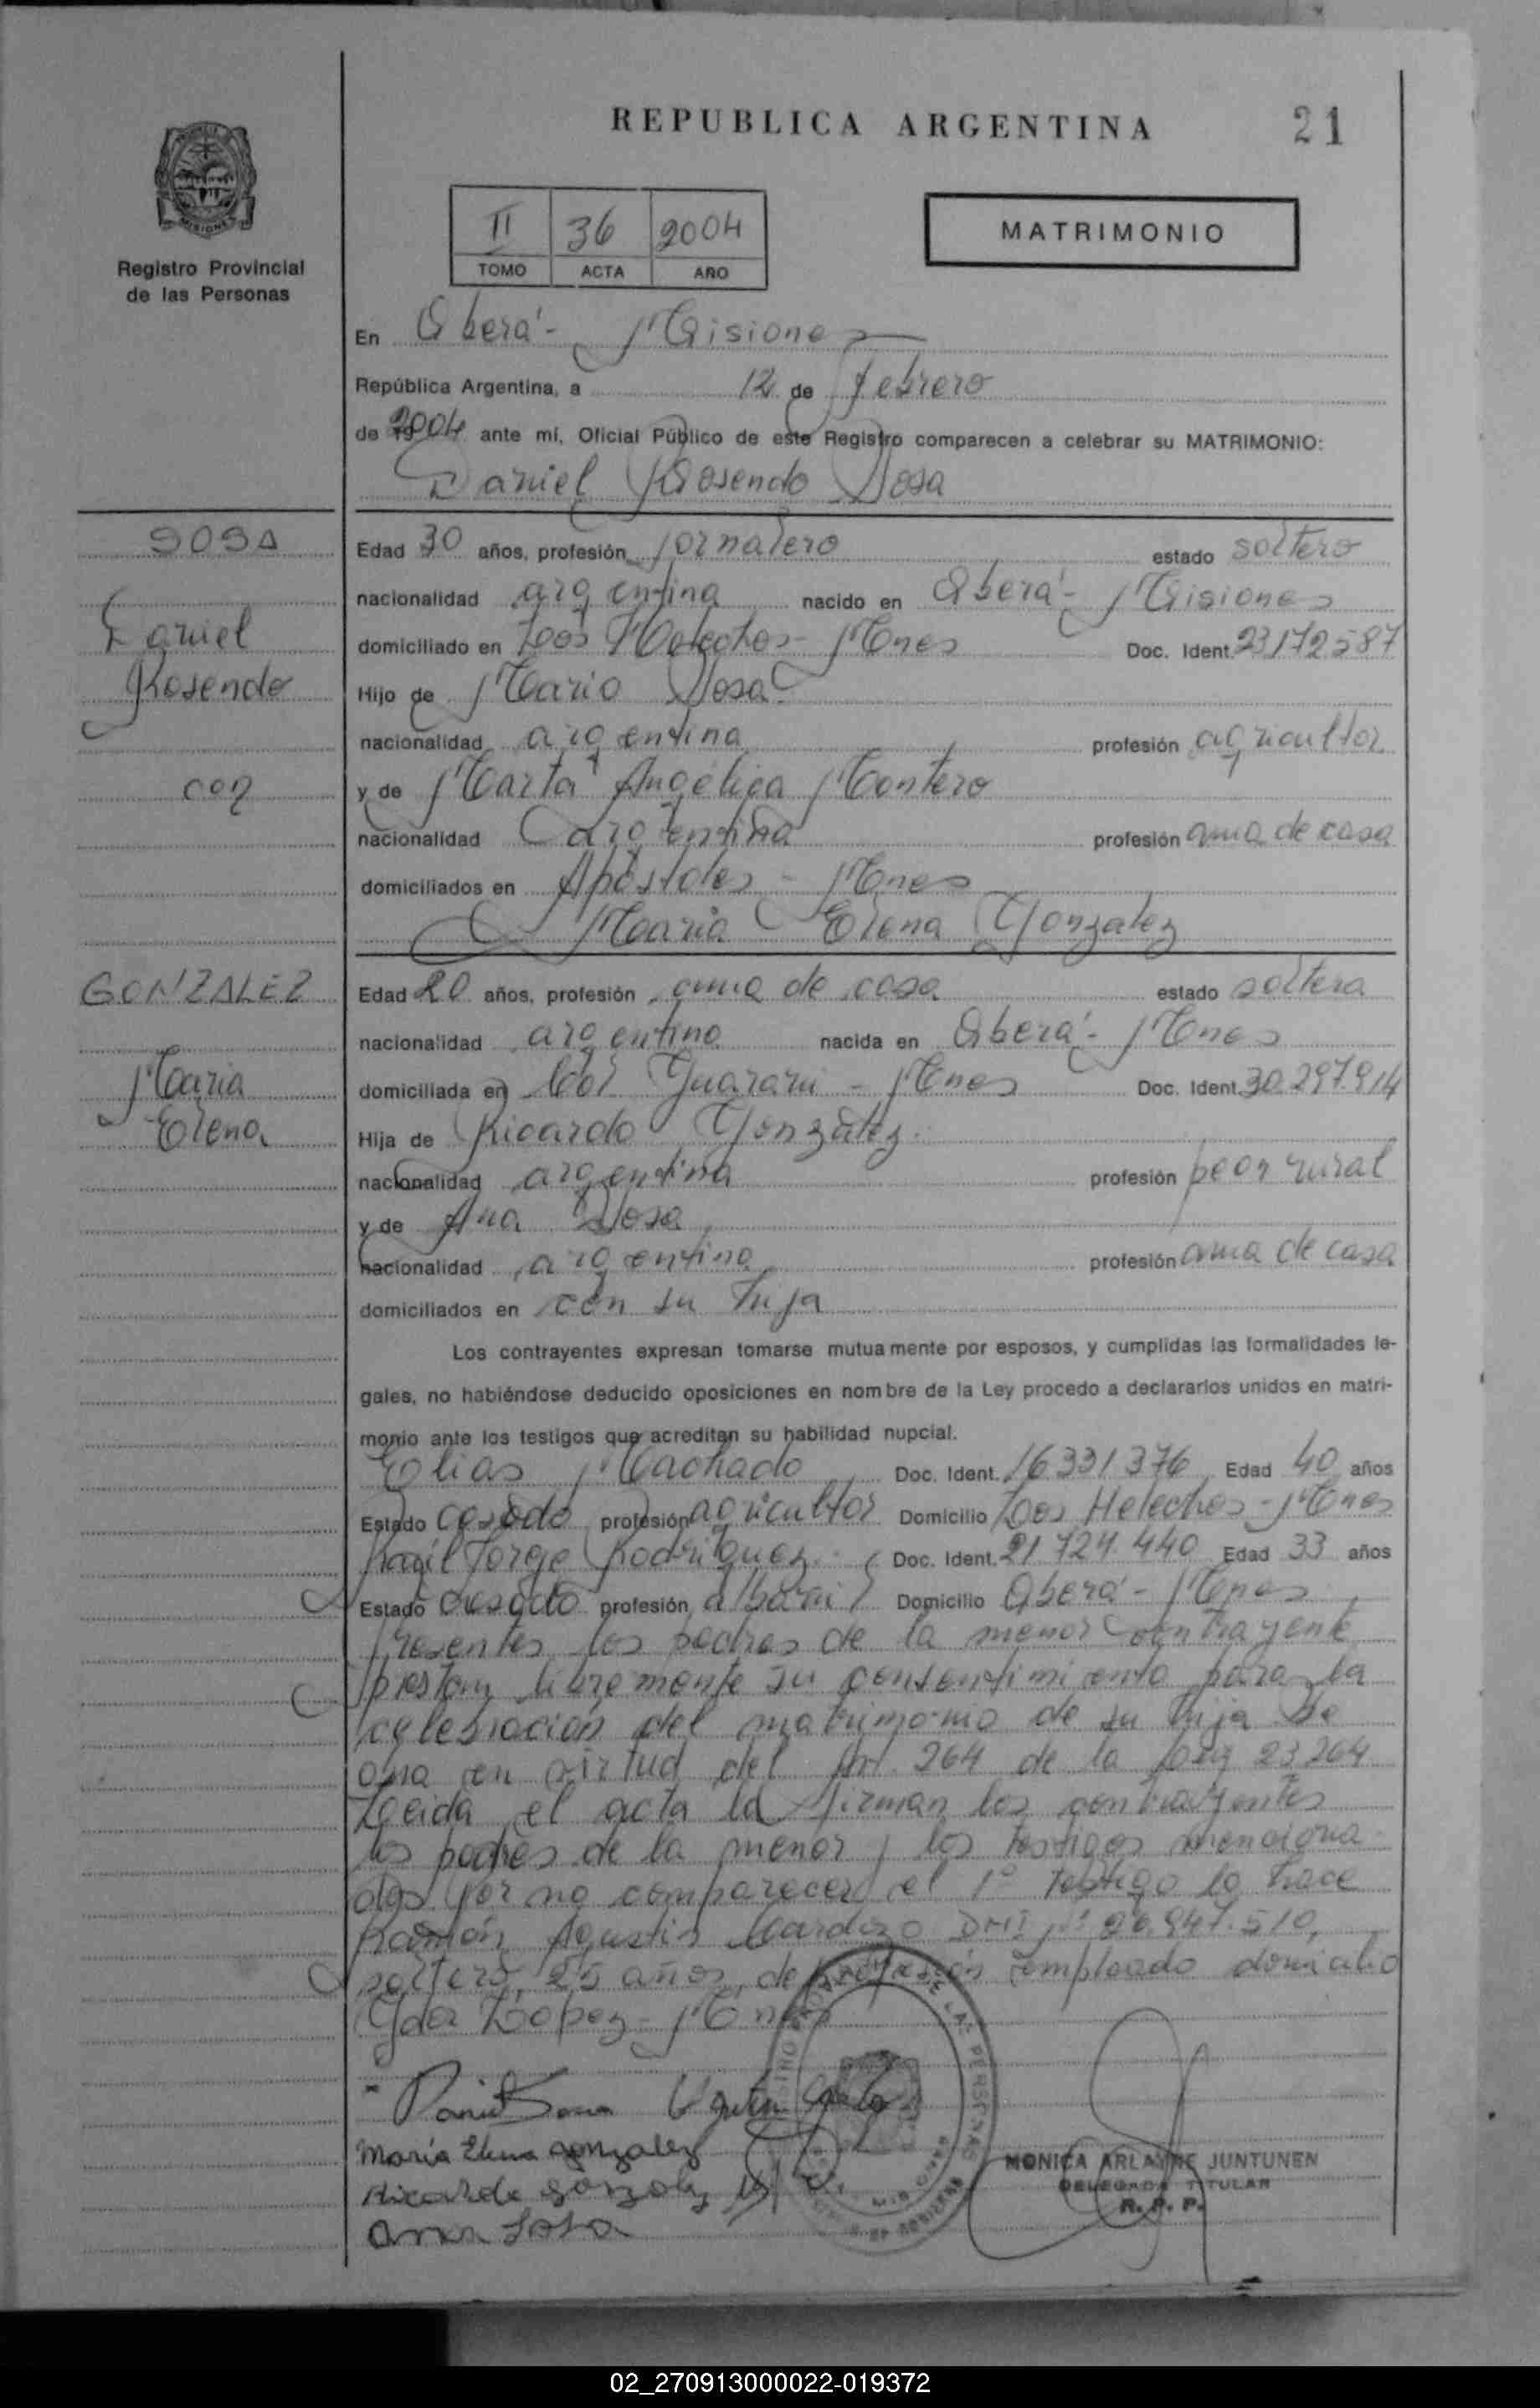 REPUBLICA ARGENTINA
21
II 36 2004
TOMO ACTA AÑO
MATRIMONIO
Registro Provincial
de las Personas
En Oberá - Misiones
República Argentina, a 12 de febrero
de 2004 ante mí, Oficial Público de este Registro comparecen a celebrar su MATRIMONIO:
Daniel Rosendo Sosa
SOSA
Daniel
Rosendo
con
Edad 30 años, profesión jornalero estado soltero
nacionalidad argentina nacido en Oberá - Misiones
domiciliado en Los Helechos - Mnes Doc. Ident. 23172587
Hijo de Mario Sosa
nacionalidad argentina profesión agricultor
y de Marta Angélica Montero
nacionalidad argentina profesión ama de casa
domiciliados en Apóstoles - Mnes
Maria Elena Gonzalez
GONZALEZ
Maria
Elena
Edad 20 años, profesión ama de casa estado soltera
nacionalidad argentina nacida en Oberá - Mnes
domiciliada en Col Guarani - Mnes Doc. Ident. 30.297.914
Hija de Ricardo Gonzalez
nacionalidad argentina profesión peon rural
y de Ana Sosa
nacionalidad argentina profesión ama de casa
domiciliados en con su hija
Los contrayentes expresan tomarse mutuamente por esposos, y cumplidas las formalidades le-
gales, no habiéndose deducido oposiciones en nombre de la Ley procedo a declararlos unidos en matri-
monio ante los testigos que acreditan su habilidad nupcial.
Elias Machado Doc. Ident. 16331376 Edad 40 años
Estado casado profesión agricultor Domicilio Los Helechos - Mnes
Raúl Jorge Rodriguez Doc. Ident. 21.724.440 Edad 33 años
Estado casado profesión albañil Domicilio Oberá - Mnes
Presentes los padres de la menor contrayente
prestan libremente su consentimiento para la
celebración del matrimonio de su hija
en virtud del Art. 264 de la Ley 23.264
Leida el acta la firman los contrayentes
los padres de la menor y los testigos menciona-
dos. Por no comparecer el 1º testigo lo hace
Ramón Agustin Cardozo DNI Nº 26.947.510,
soltero, 25 años, de profesión empleado domicilio
Gdor Lopez - Mnes
Daniel Sosa
María Elena gonzalez
Ricardo gonzalez
Ana Sosa
MONICA ARLAYNE JUNTUNEN
DELEGADA TITULAR
R. P. P.
02_270913000022-019372